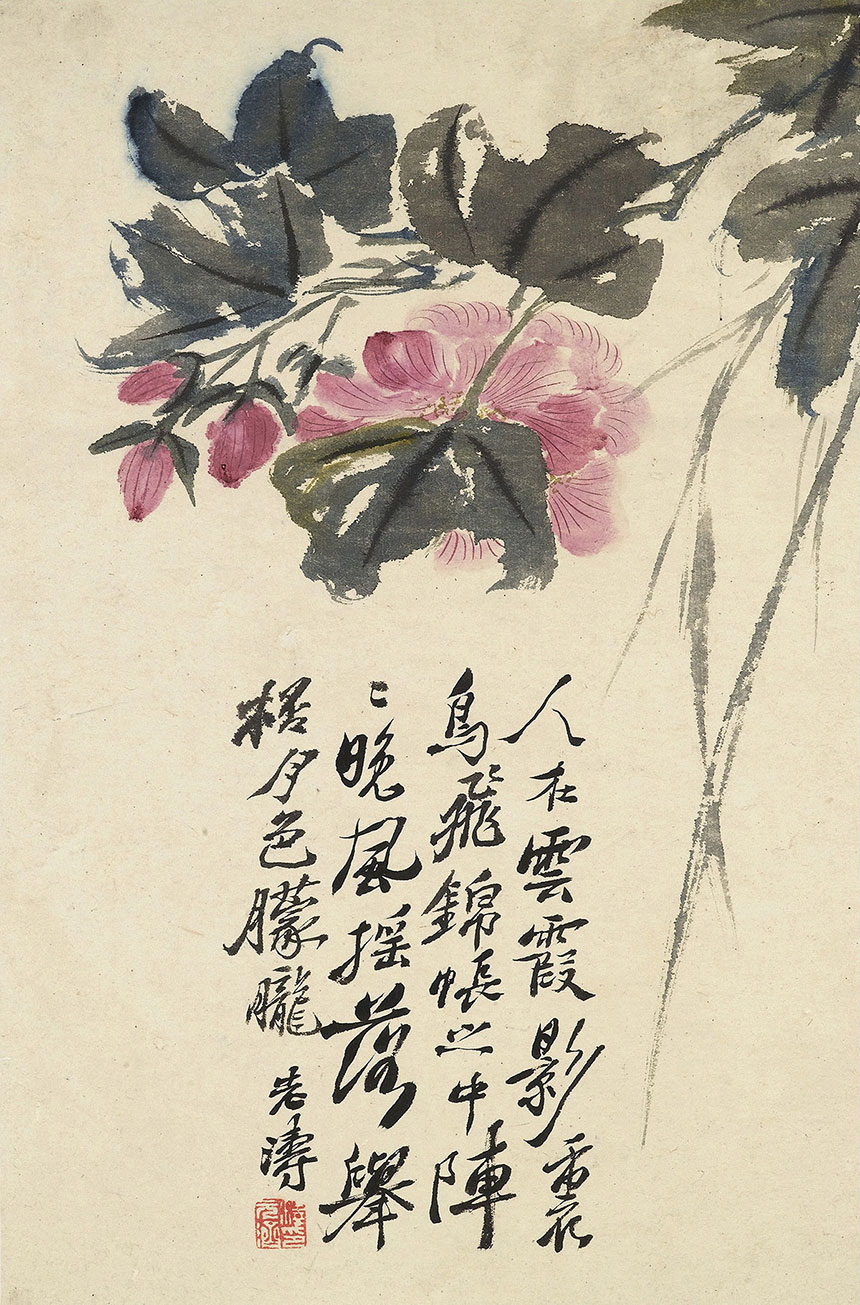 人在雲霞影裏
鳥飛錦帳之中陣
〻晚風摇落舉
桮月色朦朧
老濤